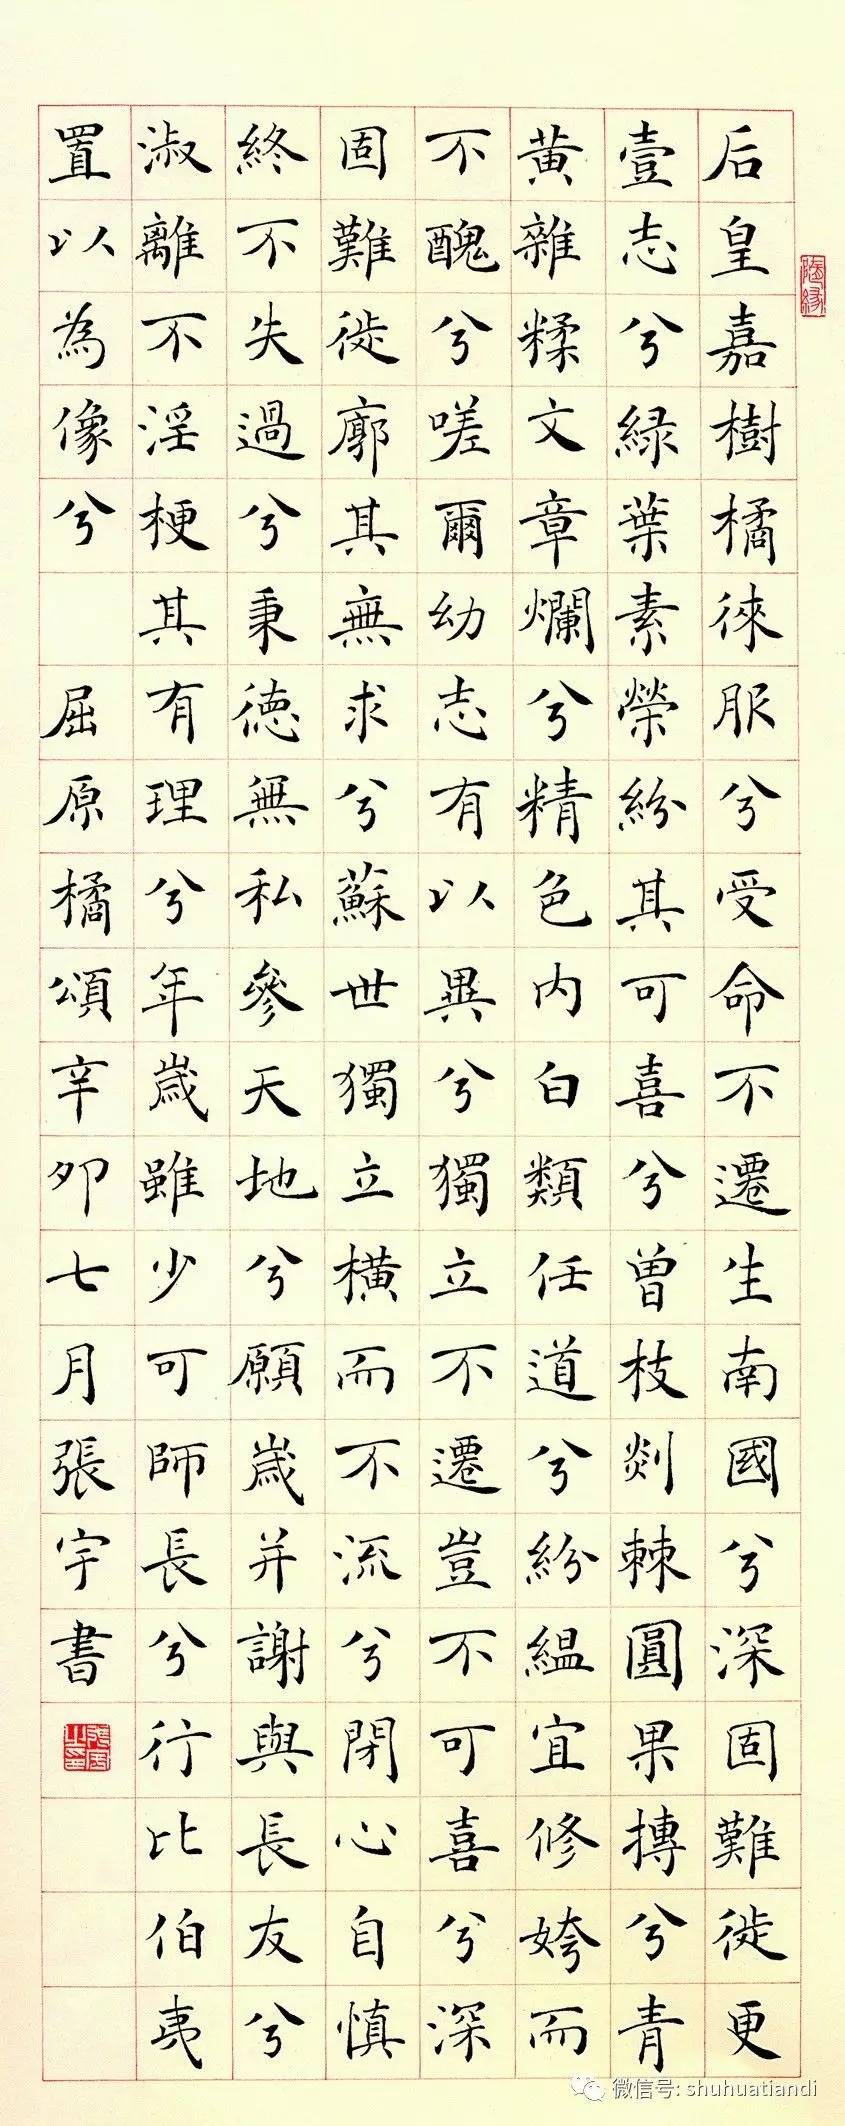 后皇嘉樹橘徠服兮受命不遷生南國兮深固難徙更
壹志兮緑葉素榮紛其可喜兮曾枝剡棘圓果摶兮青
黃雜糅文章爛兮精色内白類任道兮紛緼宜修姱而
不醜兮嗟爾幼志有以異兮獨立不遷豈不可喜兮深
固難徙廓其無求兮蘇世獨立橫而不流兮閉心自慎
終不失過兮秉德無私參天地兮願歲并謝與長友兮
淑離不淫梗其有理兮年歲雖少可師長兮行比伯夷
置以為像兮 屈原橘頌辛卯七月張宇書
微信号: shuhuatiandi